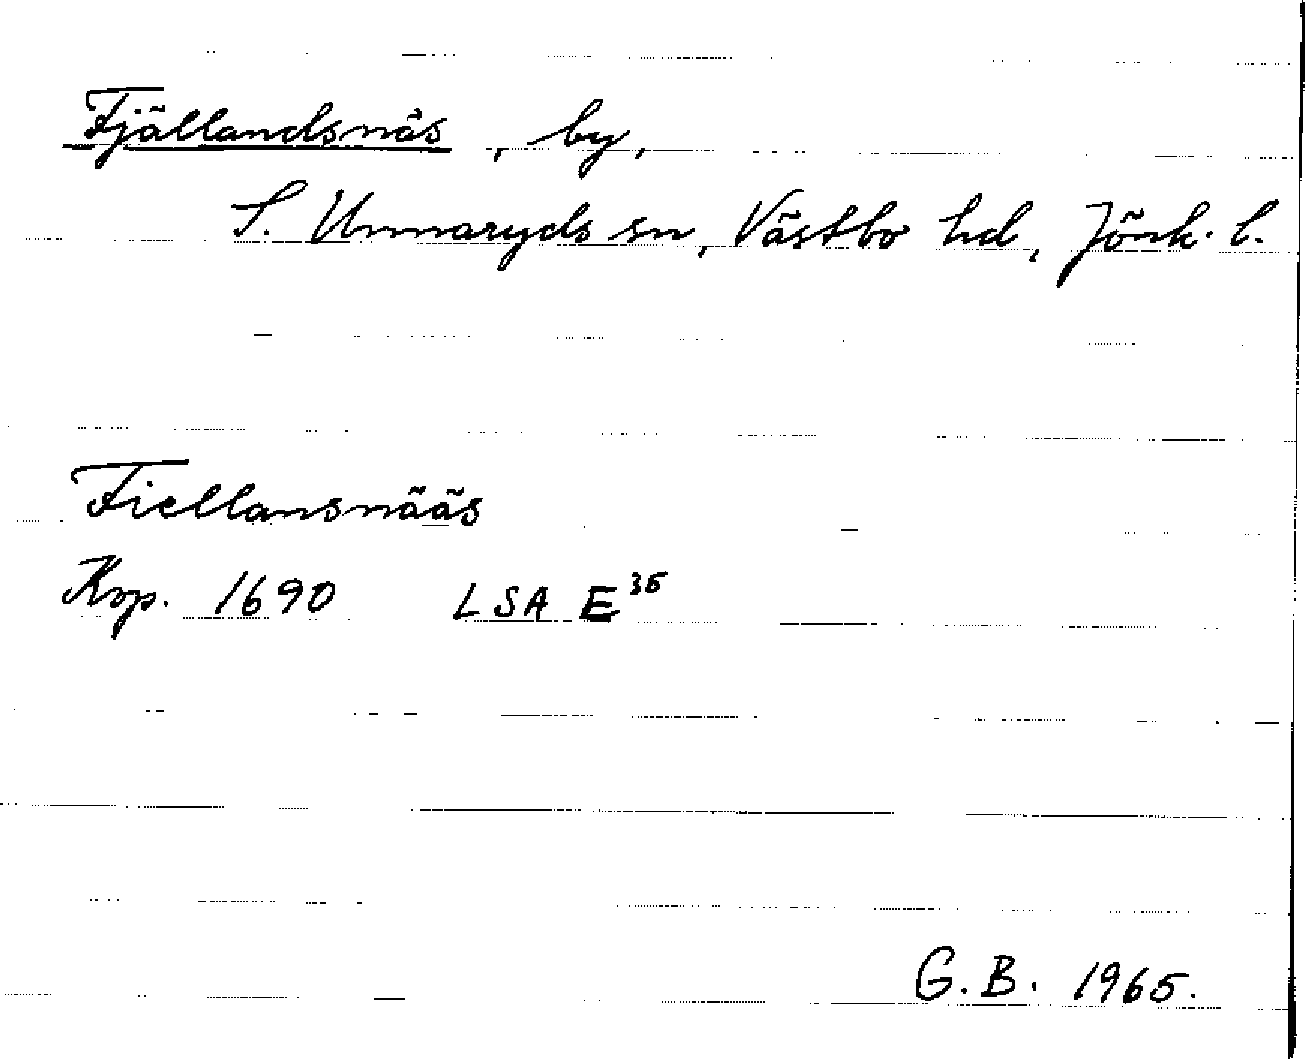 Fjällandsnäs, by,
S. Unnaryds sn, Västbo hd, Jönk. l.
Fiellansnääs
Kop. 1690 LSA E³⁵
G. B. 1965.